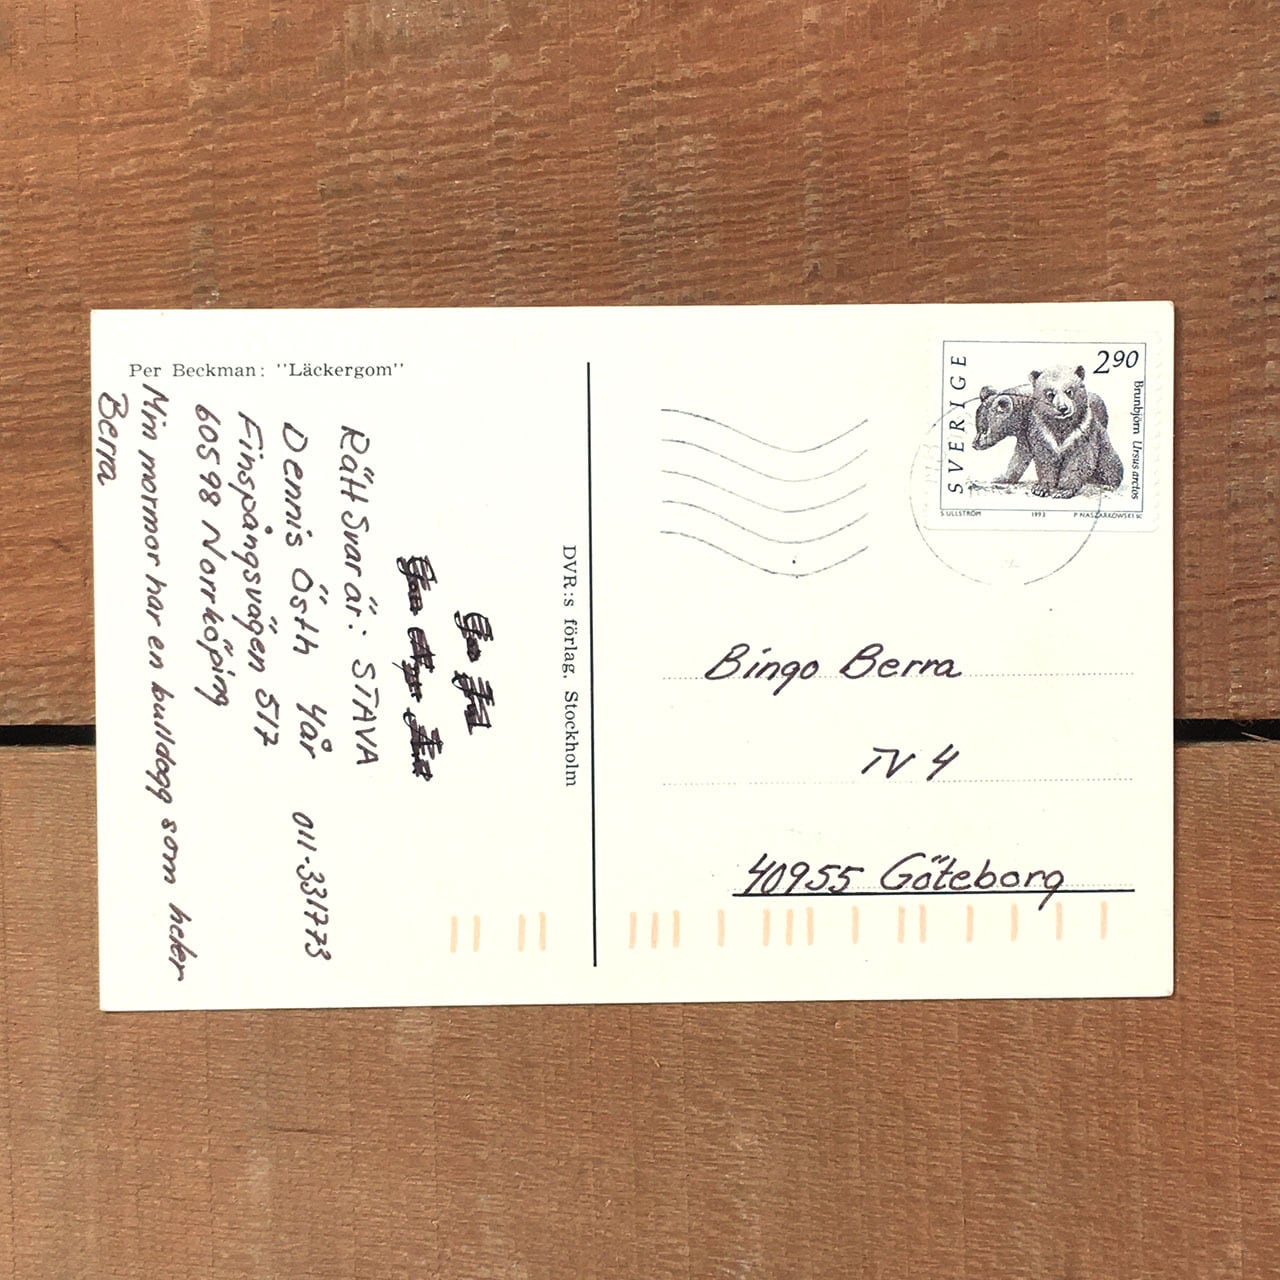 Per Beckman: "Läckergom"
Rätt Svar är: STAVA
Dennis Östh 4år 011-331773
Finspångsvägen 517
60598 Norrköping
Min mormor har en bulldogg som heter
Berra
DVR:s förlag, Stockholm
SVERIGE
290
Brunbjörn Ursus arctos
S ULLSTRÖM 1993 P NASZARKOWSKI SC
Bingo Berra
TV 4
40955 Göteborg